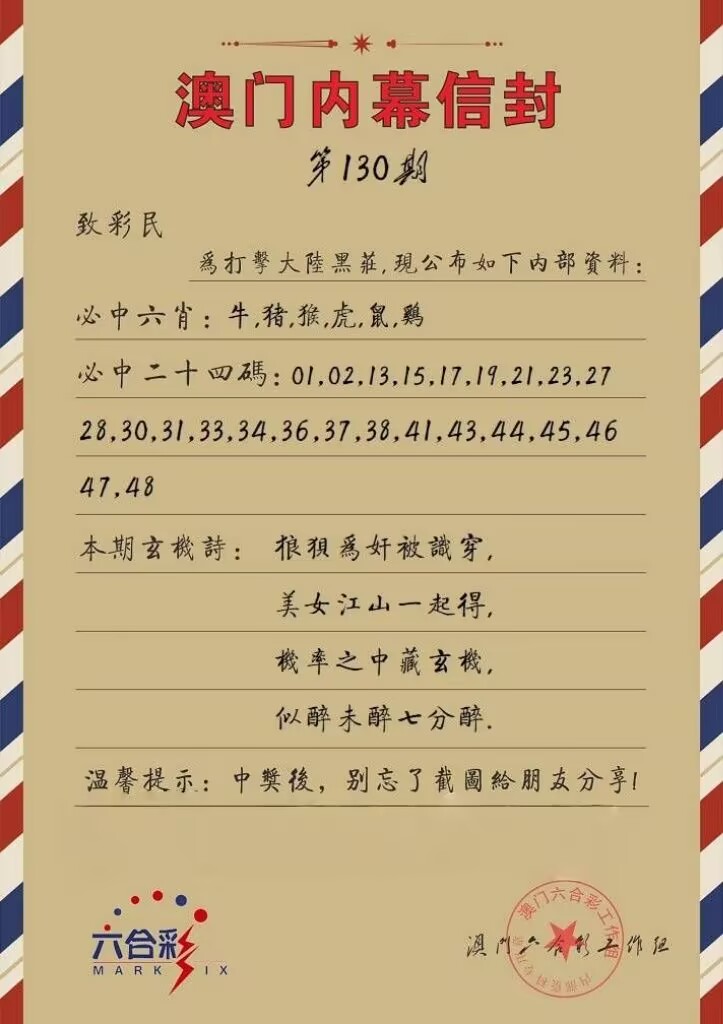 澳门内幕信封
第130期
致彩民
為打擊大陸黑莊,現公布如下內部資料:
必中六肖:牛,猪,猴,虎,鼠,鷄
必中二十四碼:01,02,13,15,17,19,21,23,27
28,30,31,33,34,36,37,38,41,43,44,45,46
47,48
本期玄機詩: 狼狽為奸被識穿,
美女江山一起得,
機率之中藏玄機,
似醉未醉七分醉.
温馨提示:中獎後,别忘了截圖給朋友分享!
六合彩
MARK SIX
澳门六合彩工作组
澳門六合彩工作组